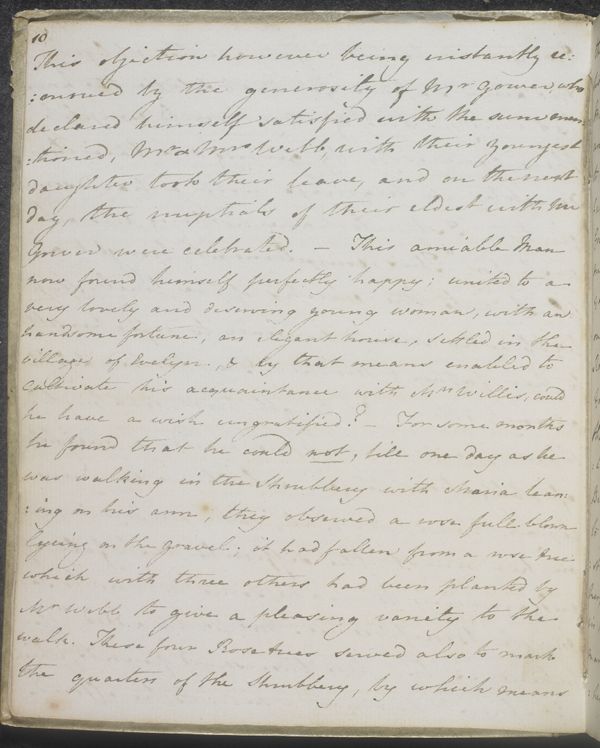 10
This objection however being instantly re:
:moved by the generosity of Mr Gower, who
declared himself satisfied with the sum men:
:tioned, Mr & Mrs Webb, with their youngest
daughter took their leave, and on the next
day, the nuptials of their eldest with Mr
Gower were celebrated. — This amiable Man
now found himself perfectly happy; united to a
very lovely and deserving young woman, with an
handsome fortune, an elegant house, settled in the
village of Evelyn, & by that means enabled to
cultivate his acquaintance with Mrs Willis, could
he have a wish ungratified? — For some months
he found that he could not, till one day as he
was walking in the Shrubbery with Maria lean:
:ing on his arm, they observed a rose full-blown
lying on the gravel; it had fallen from a rose tree
which with three others had been planted by
Mr Webb to give a pleasing variety to the
walk. These four Rose trees served also to mark
the quarters of the Shrubbery, by which means